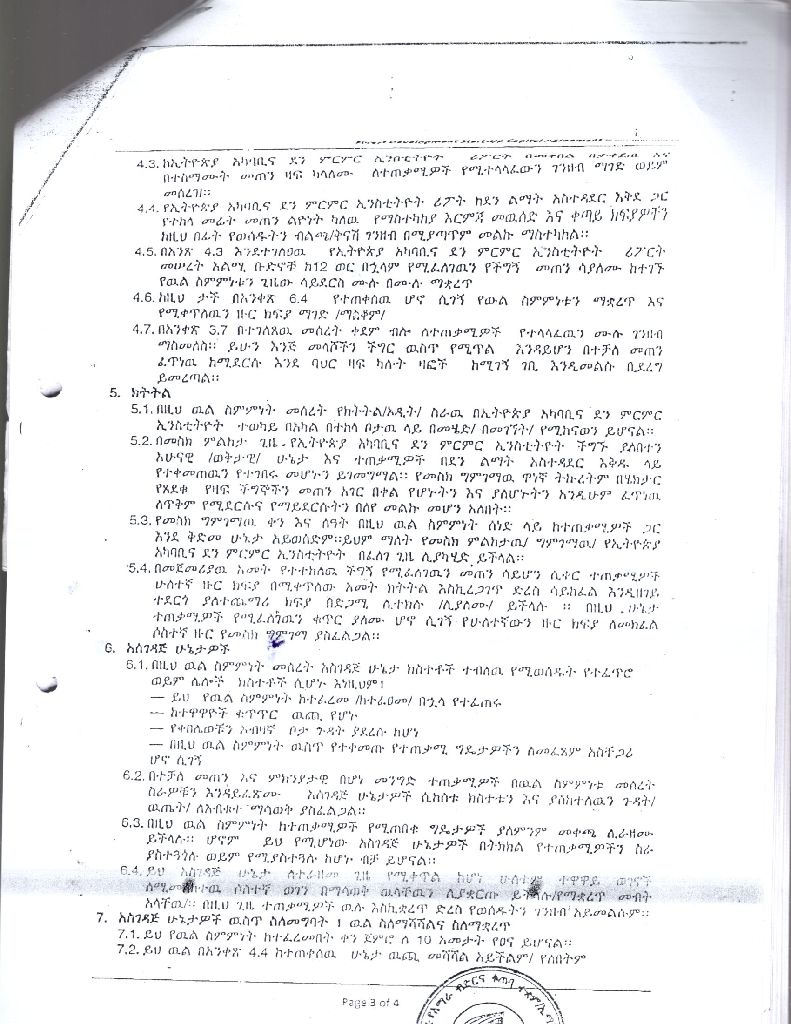 4.3. ከኢትዮጵያ አካባቢና ደን ምርምር ኢንስቲትዮት ሪፖርት
በተስማሙት መጠን ዛፍ ካላለሙ ለተጠቃሚዎች የሚተላለፈውን ገንዘብ ማገድ ወይም
መሰረዝ፡፡
4.4. የኢትዮጵያ አካባቢና ደን ምርምር ኢንስቲትዮት ሪፖት ከደን ልማት አስተዳደር እቅድ ጋር
የተከላ መሬት መጠን ልዮነት ካለዉ የማስተካከያ እርምጃ መዉሰድ እና ቀጣይ ክፍያዎችን
ከዚህ በፊት የወሰዱትን ብልጫ/ትናሽ ገንዘብ በሚያጣጥም መልኩ ማስተካከል፡፡
4.5. በአንጽ 4.3 እንደተገለፀዉ የኢትዮጵያ አካባቢና ደን ምርምር ኢንስቲትዮት ሪፖርት
መሠረት አልሚ ቡድኖቹ ከ12 ወር በኋላም የሚፈለገዉን የችግኝ መጠን ሳያለሙ ከተገኙ
የዉል ስምምነቱን ጊዜው ሳይደርስ ሙሉ በሙሉ ማቋረጥ
4.6. ከዚህ ታች በአንቀጽ 6.4 የተጠቀሰዉ ሆኖ ሲገኝ የውል ስምምነቱን ማቋረጥ እና
የሚቀጥለዉን ዙር ክፍያ ማገድ /ማስቆም/
4.7. በአንቀጽ 3.7 በተገለጸዉ መሰረት ቀደም ብሎ ለተጠቃሚዎች የተላላፈዉን ሙሉ ገንዘብ
ማስመለስ፡፡ ይሁን እንጅ መላሾችን ችግር ዉስጥ የሚጥል እንዳይሆን በተቻለ መጠን
ፈጥነዉ ከሚደርሱ እንደ ባህር ዛፍ ካሉት ዛፎች ከሚገኝ ገቢ እንዲመልሱ ቢደረግ
ይመረጣል፡፡
5. ክትትል
5.1. በዚህ ዉል ስምምነት መሰረት የክትትል/ኦዲት/ ስራዉ በኢትዮጵያ አካባቢና ደን ምርምር
ኢንስቲትዮት ተወካይ በአካል በተከላ ቦታዉ ላይ በመሄድ/ በመገኘት/ የሚከናወን ይሆናል፡፡
5.2. በመስክ ምልከታ ጊዜ የኢትዮጵያ አካባቢና ደን ምርምር ኢንስቲትዮት ችግኙ ያለበተን
አሁናዊ /ወቅታዊ/ ሁኔታ እና ተጠቃሚዎች በደን ልማት አስተዳደር እቅዱ ላይ
የተቀመጠዉን የተገበሩ መሆኑን ይገመግማል፡፡ የመስክ ግምገማዉ ዋነኛ ትኩረትም በሄክታር
የጸደቁ የዛፍ ችግኞችን መጠን አገር በቀል የሆኑትን እና ያልሆኑትን እንዲሁም ፈጥነዉ
ለጥቅም የሚደርሱና የማይደርሱትን በለየ መልኩ መሆን አለበት፡፡
5.3. የመስክ ግምገማዉ ቀን እና ሰዓት በዚህ ዉል ስምምነት ሰነድ ላይ ከተጠቃሚዎች ጋር
እንደ ቅድመ ሁኔታ አይወሰድም፡፡ይህም ማለት የመስክ ምልከታዉ/ ግምገማዉ/ የኢትዮጵያ
አካባቢና ደን ምርምር ኢንስቲትዮት በፈለገ ጊዜ ሊያካሂድ ይችላል፡፡
5.4. በመጀመሪያዉ አመት የተተከለዉ ችግኝ የሚፈለገዉን መጠን ሳይሆን ሲቀር ተጠቃሚዎች
ሁለተኛ ዙር ክፍያ በሚቀጥለው አመት ክትትል እስኪረጋገጥ ድረስ ሳይከፈል እንዲዘገይ
ተደርጎ ያለተጨማሪ ክፍያ በድጋሚ ሊተክሉ /ሊያለሙ/ ይችላሉ ፡፡ በዚህ ሁኔታ
ተጠቃሚዎች የሚፈለገዉን ቁጥር ያለሙ ሆኖ ሲገኝ የሁለተኛውን ዙር ክፍያ ለመክፈል
ሶስተኛ ዙር የመስክ ግምገማ ያስፈልጋል፡፡
6. አስገዳጅ ሁኔታዎች
6.1. በዚህ ዉል ስምምነት መሰረት አስገዳጅ ሁኔታ ክስተቶች ተብለዉ የሚወሰዱት የተፈጥሮ
ወይም ሌሎች ክስተቶች ሲሆኑ እነዚህም፤
— ይህ የዉል ስምምነት ከተፈረመ /ከተፈፀመ/ በኋላ የተፈጠሩ
— ከተዋዋዮች ቁጥጥር ዉጪ የሆኑ
— የቀበሌውቹን አብዛኛ ቦታ ጉዳት ያደረሱ ከሆነ
— በዚህ ዉል ስምምነት ዉስጥ የተቀመጡ የተጠቃሚ ግዴታዎችን ለመፈጸም አስቸጋሪ
ሆኖ ሲገኝ
6.2. በተቻለ መጠን እና ምክንያታዊ በሆነ መንግድ ተጠቃሚዎች በዉል ስምምነቱ መሰረት
ስራዎቹን እንዳይፈጽሙ አስገዳጅ ሁኔታዎች ሲከሰቱ ክስተቱን እና ያስከተለዉን ጉዳት/
ዉጤት/ ለአብቁተ ማሳወቅ ያስፈልጋል፡፡
6.3. በዚህ ዉል ስምምነት ከተጠቃሚዎች የሚጠበቁ ግዴታዎች ያለምንም መቀጫ ሊራዘሙ
ይችላሉ፡፡ ሆኖም ይህ የሚሆነው አስገዳጅ ሁኔታዎች በትክክል የተጠቃሚዎችን ስራ
ያስተጓጎሉ ወይም የሚያስተጓጉሉ ከሆኑ ብቻ ይሆናል፡፡
6.4. ይህ አስገዳጅ ሁኔታ ለተራዘመ ጊዜ የሚቀጥል ከሆነ ሁለተም ተዋዋይ ወገኖች
ሶስተኛ ወገን በማሳወቅ ዉላቸዉን ሊያቋርጡ ይችላሉ/የማቋረጥ መብት
አላቸዉ/፡፡ በዚህ ጊዜ ተጠቃሚዎች ዉሉ እስኪቋረጥ ድረስ የወሰዱትን ገንዘብ አይመልሱም፡፡
7. አስገዳጅ ሁኔታዎች ዉስጥ ስለመግባት ፤ ዉል ስለማሻሻልና ስለማቋረጥ
7.1. ይህ የዉል ስምምነት ከተፈረመበት ቀን ጀምሮ ለ 10 አመታት የፀና ይሆናል፡፡
7.2. ይህ ዉል በአንቀጽ 4.4 ከተጠቀሰዉ ሁኔታ ዉጪ መሻሻል አይችልም/ የለበትም
Page 3 of 4